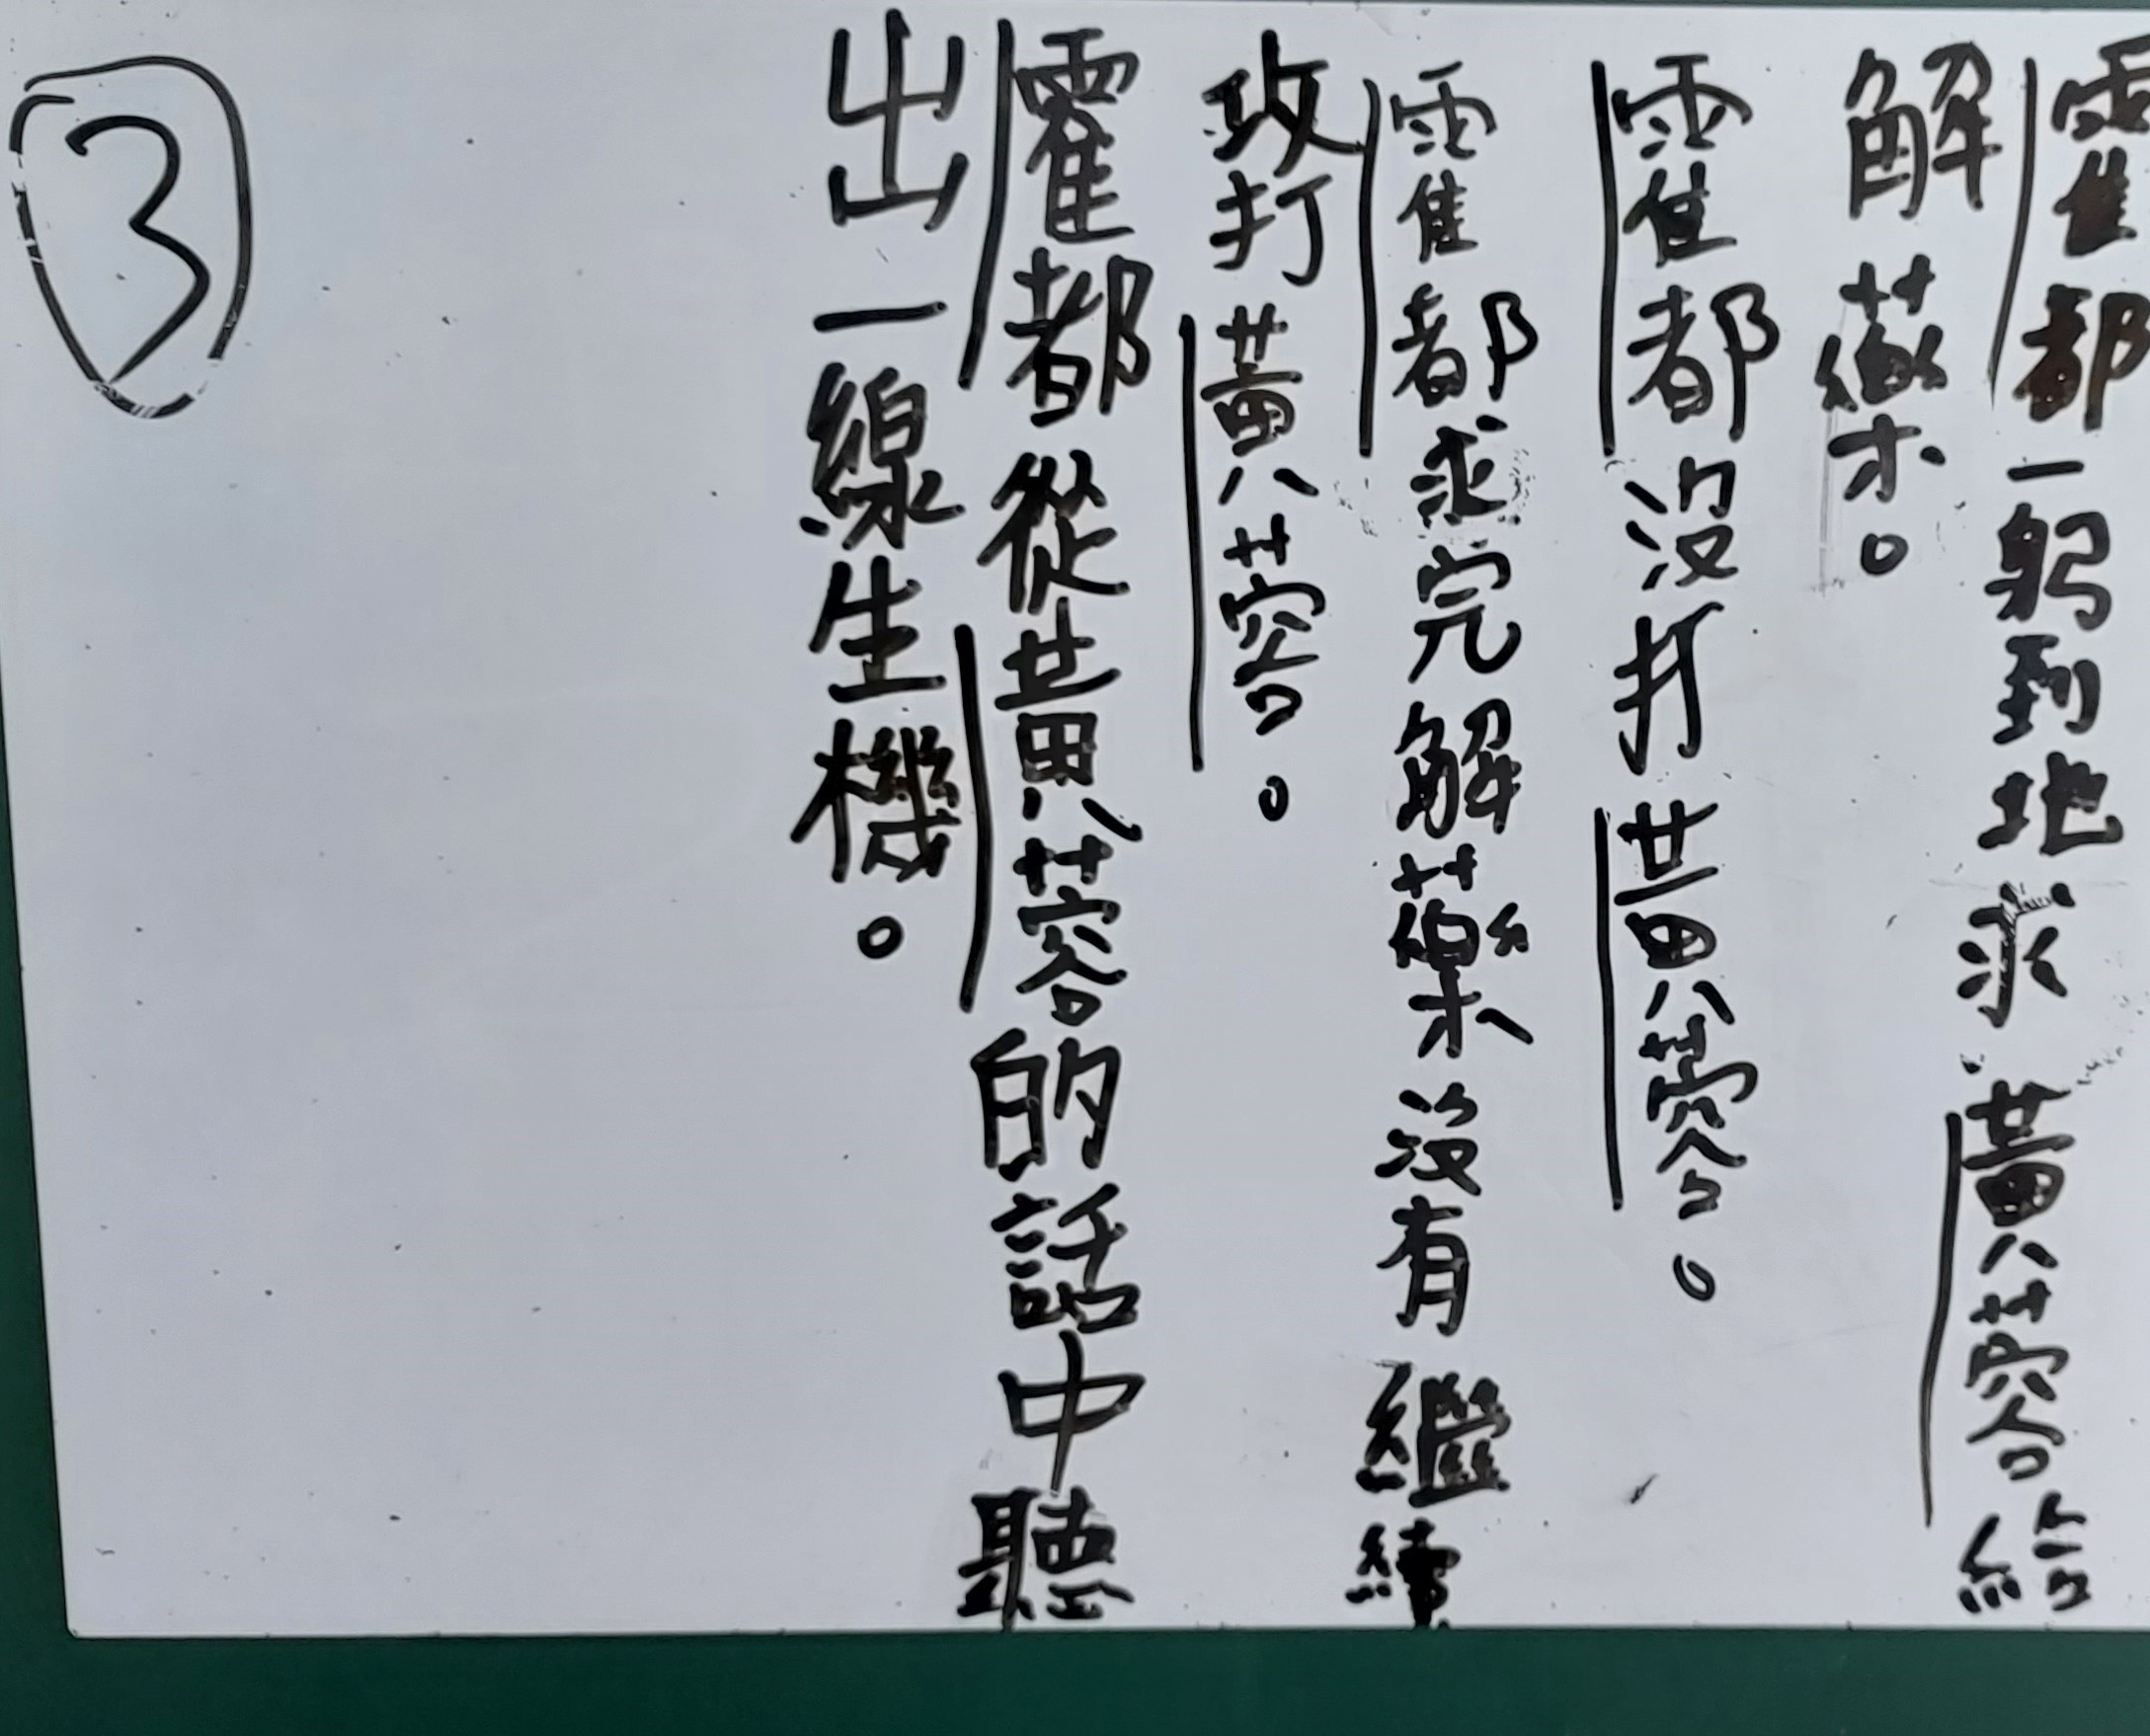 霍都一躬到地求黃蓉給
解藥。
霍都沒打黃蓉。
霍都求完解藥沒有繼續
攻打黃蓉。
霍都從黃蓉的話中聽
出一線生機。
3